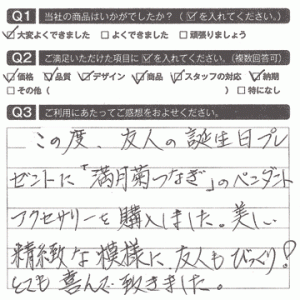 Q1 当社の商品はいかがでしたか?(☑を入れてください。)
☑大変よくできました □よくできました □頑張りましょう
Q2 ご満足いただけた項目に☑を入れてください。(複数回答可)
☑価格 ☑品質 ☑デザイン ☑商品 ☑スタッフの対応 ☑納期
□その他( ) □特になし
Q3 ご利用にあたってご感想をおよせください。
この度、友人の誕生日プレ
ゼントに「満月菊つなぎ」のペンダント
アクセサリーを購入しました。美しい
精緻な模様に、友人もびっくり!
とても喜んで頂きました。